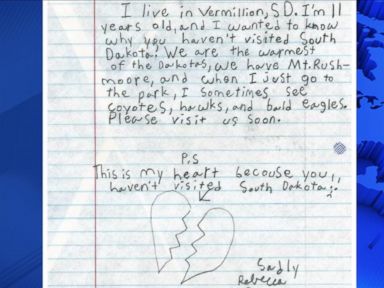 I live in Vermillion, SD. I'm 11
years old, and I wanted to know
why you haven't visited South
Dakota! We are the warmest
of the Dakotas, we have Mt. Rush-
moore, and when I just go to
the park, I sometimes see
coyotes, hawks, and bald eagles.
Please visit us soon.
P.S
This is my heart becouse you
haven't visited South Dakota:
Sadly
Rebecca